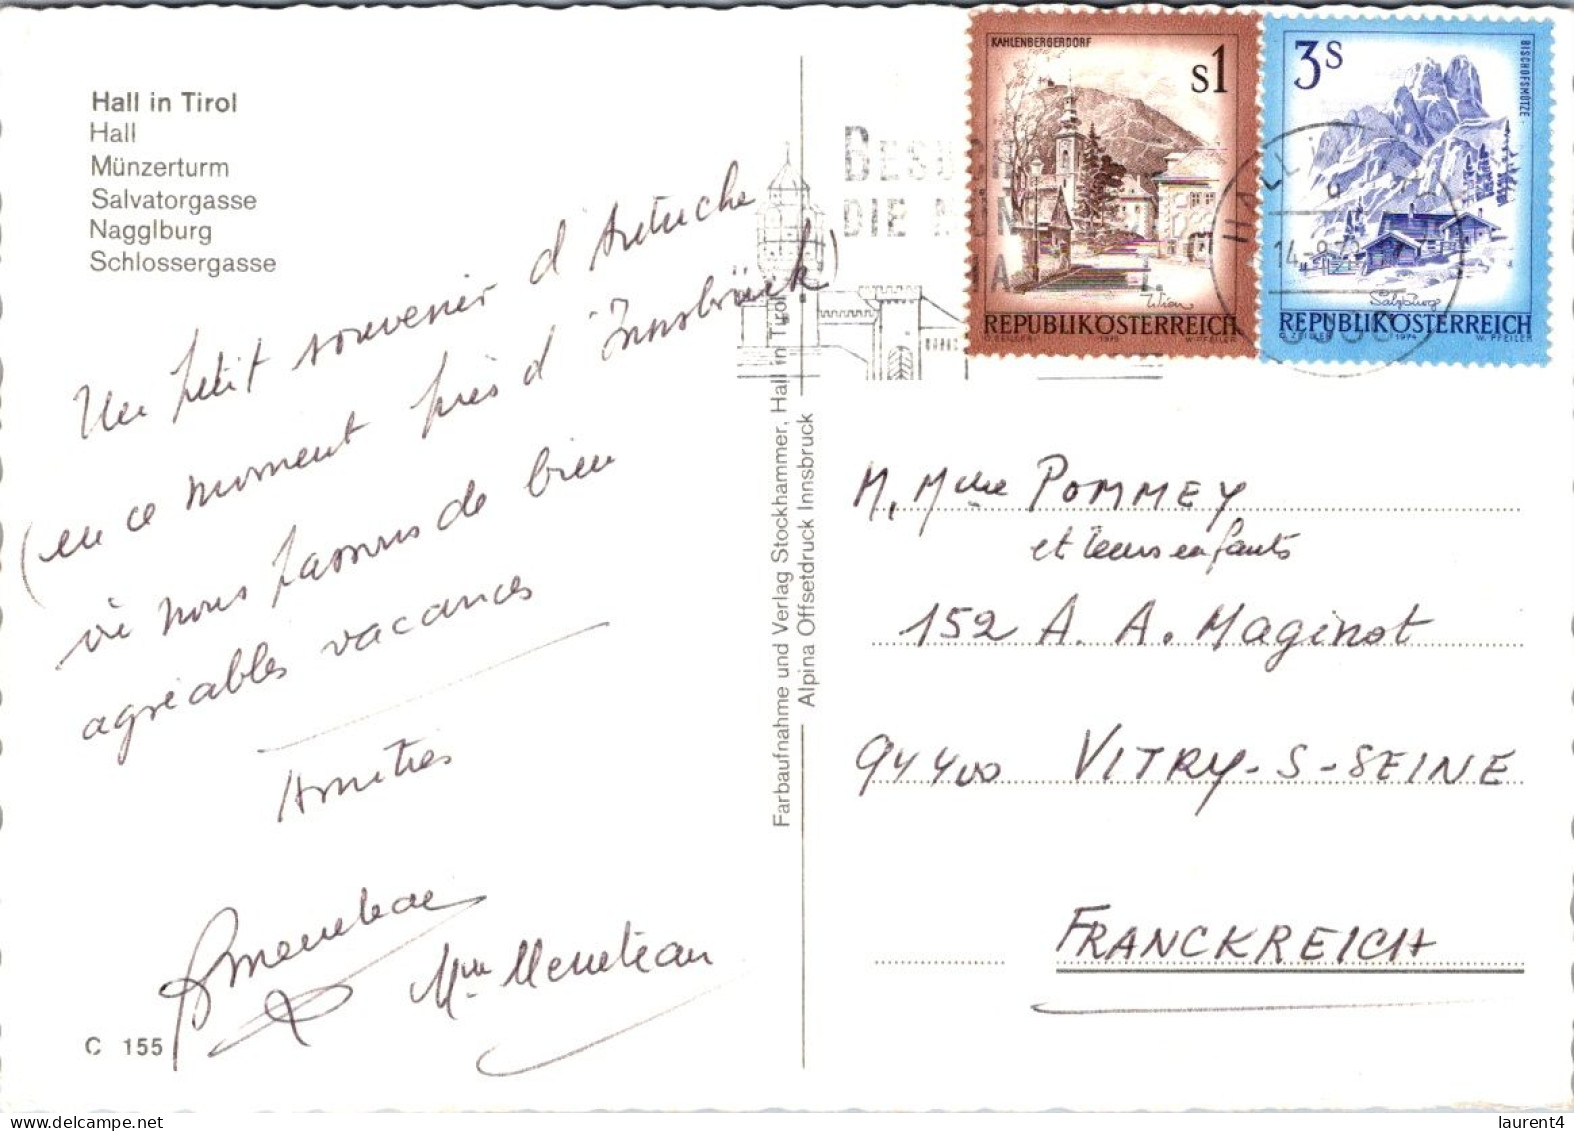 Hall in Tirol
Hall
Münzerturm
Salvatorgasse
Nagglburg
Schlossergasse
Un petit souvenir d'Autriche
(en ce moment près d'Innsbrück)
où nous passons de bien
agréables vacances
Amitiés
Mme Meneteau
C 155
Farbaufnahme und Verlag Stockhammer, Hall in Tirol
Alpina Offsetdruck Innsbruck
KAHLENBERGERDORF
S1
Wien
REPUBLIK ÖSTERREICH
O. ZEILLER 1975 W. PFEILER
3S
BISCHOFSMÜTZE
Salzburg
REPUBLIK ÖSTERREICH
O. ZEILLER 1974 W. PFEILER
BESU
DIE M N
HALL
14.-8.7
M, Mme POMMEY
et leurs enfants
152 A. A. Maginot
94400 VITRY-S-SEINE
FRANCKREICH
laurent4